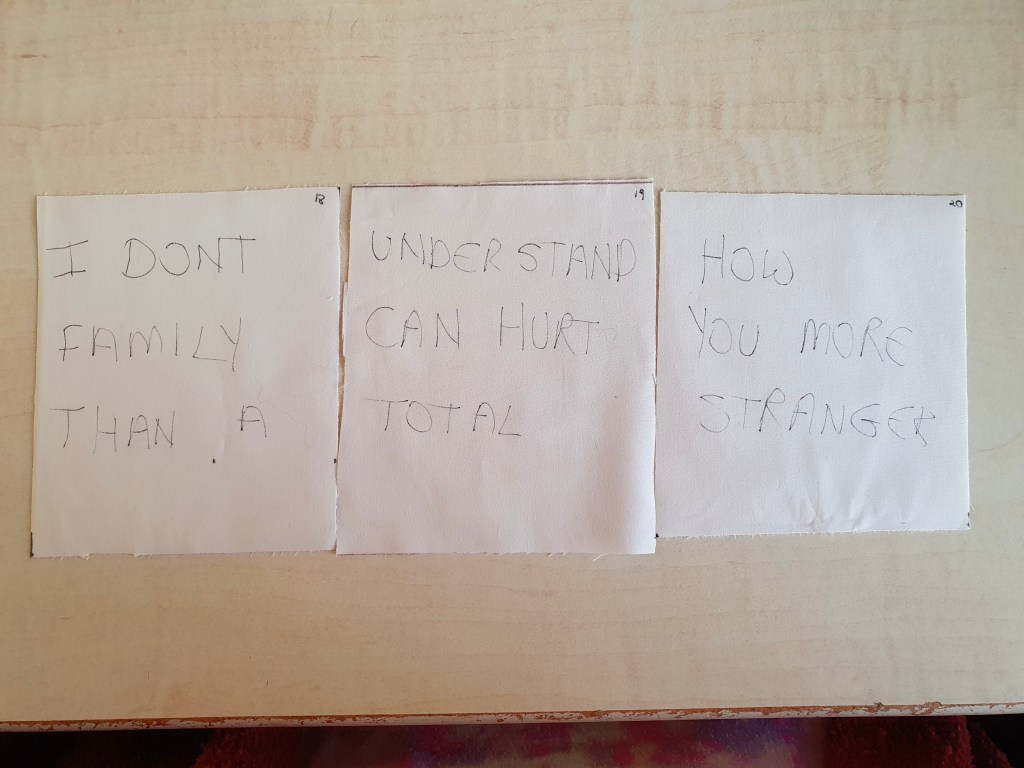 18
19
20
I DONT UNDERSTAND HOW
FAMILY CAN HURT YOU MORE
THAN A TOTAL STRANGER